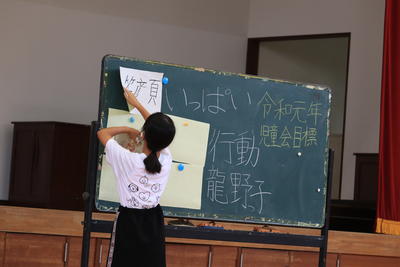 笑顔いっぱい
行動
龍野子
令和元年
児童会目標